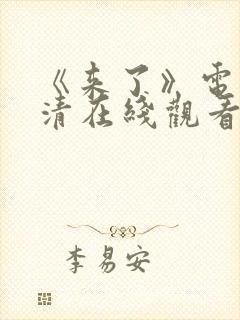 《来了》電
清在綫觀看
李易安